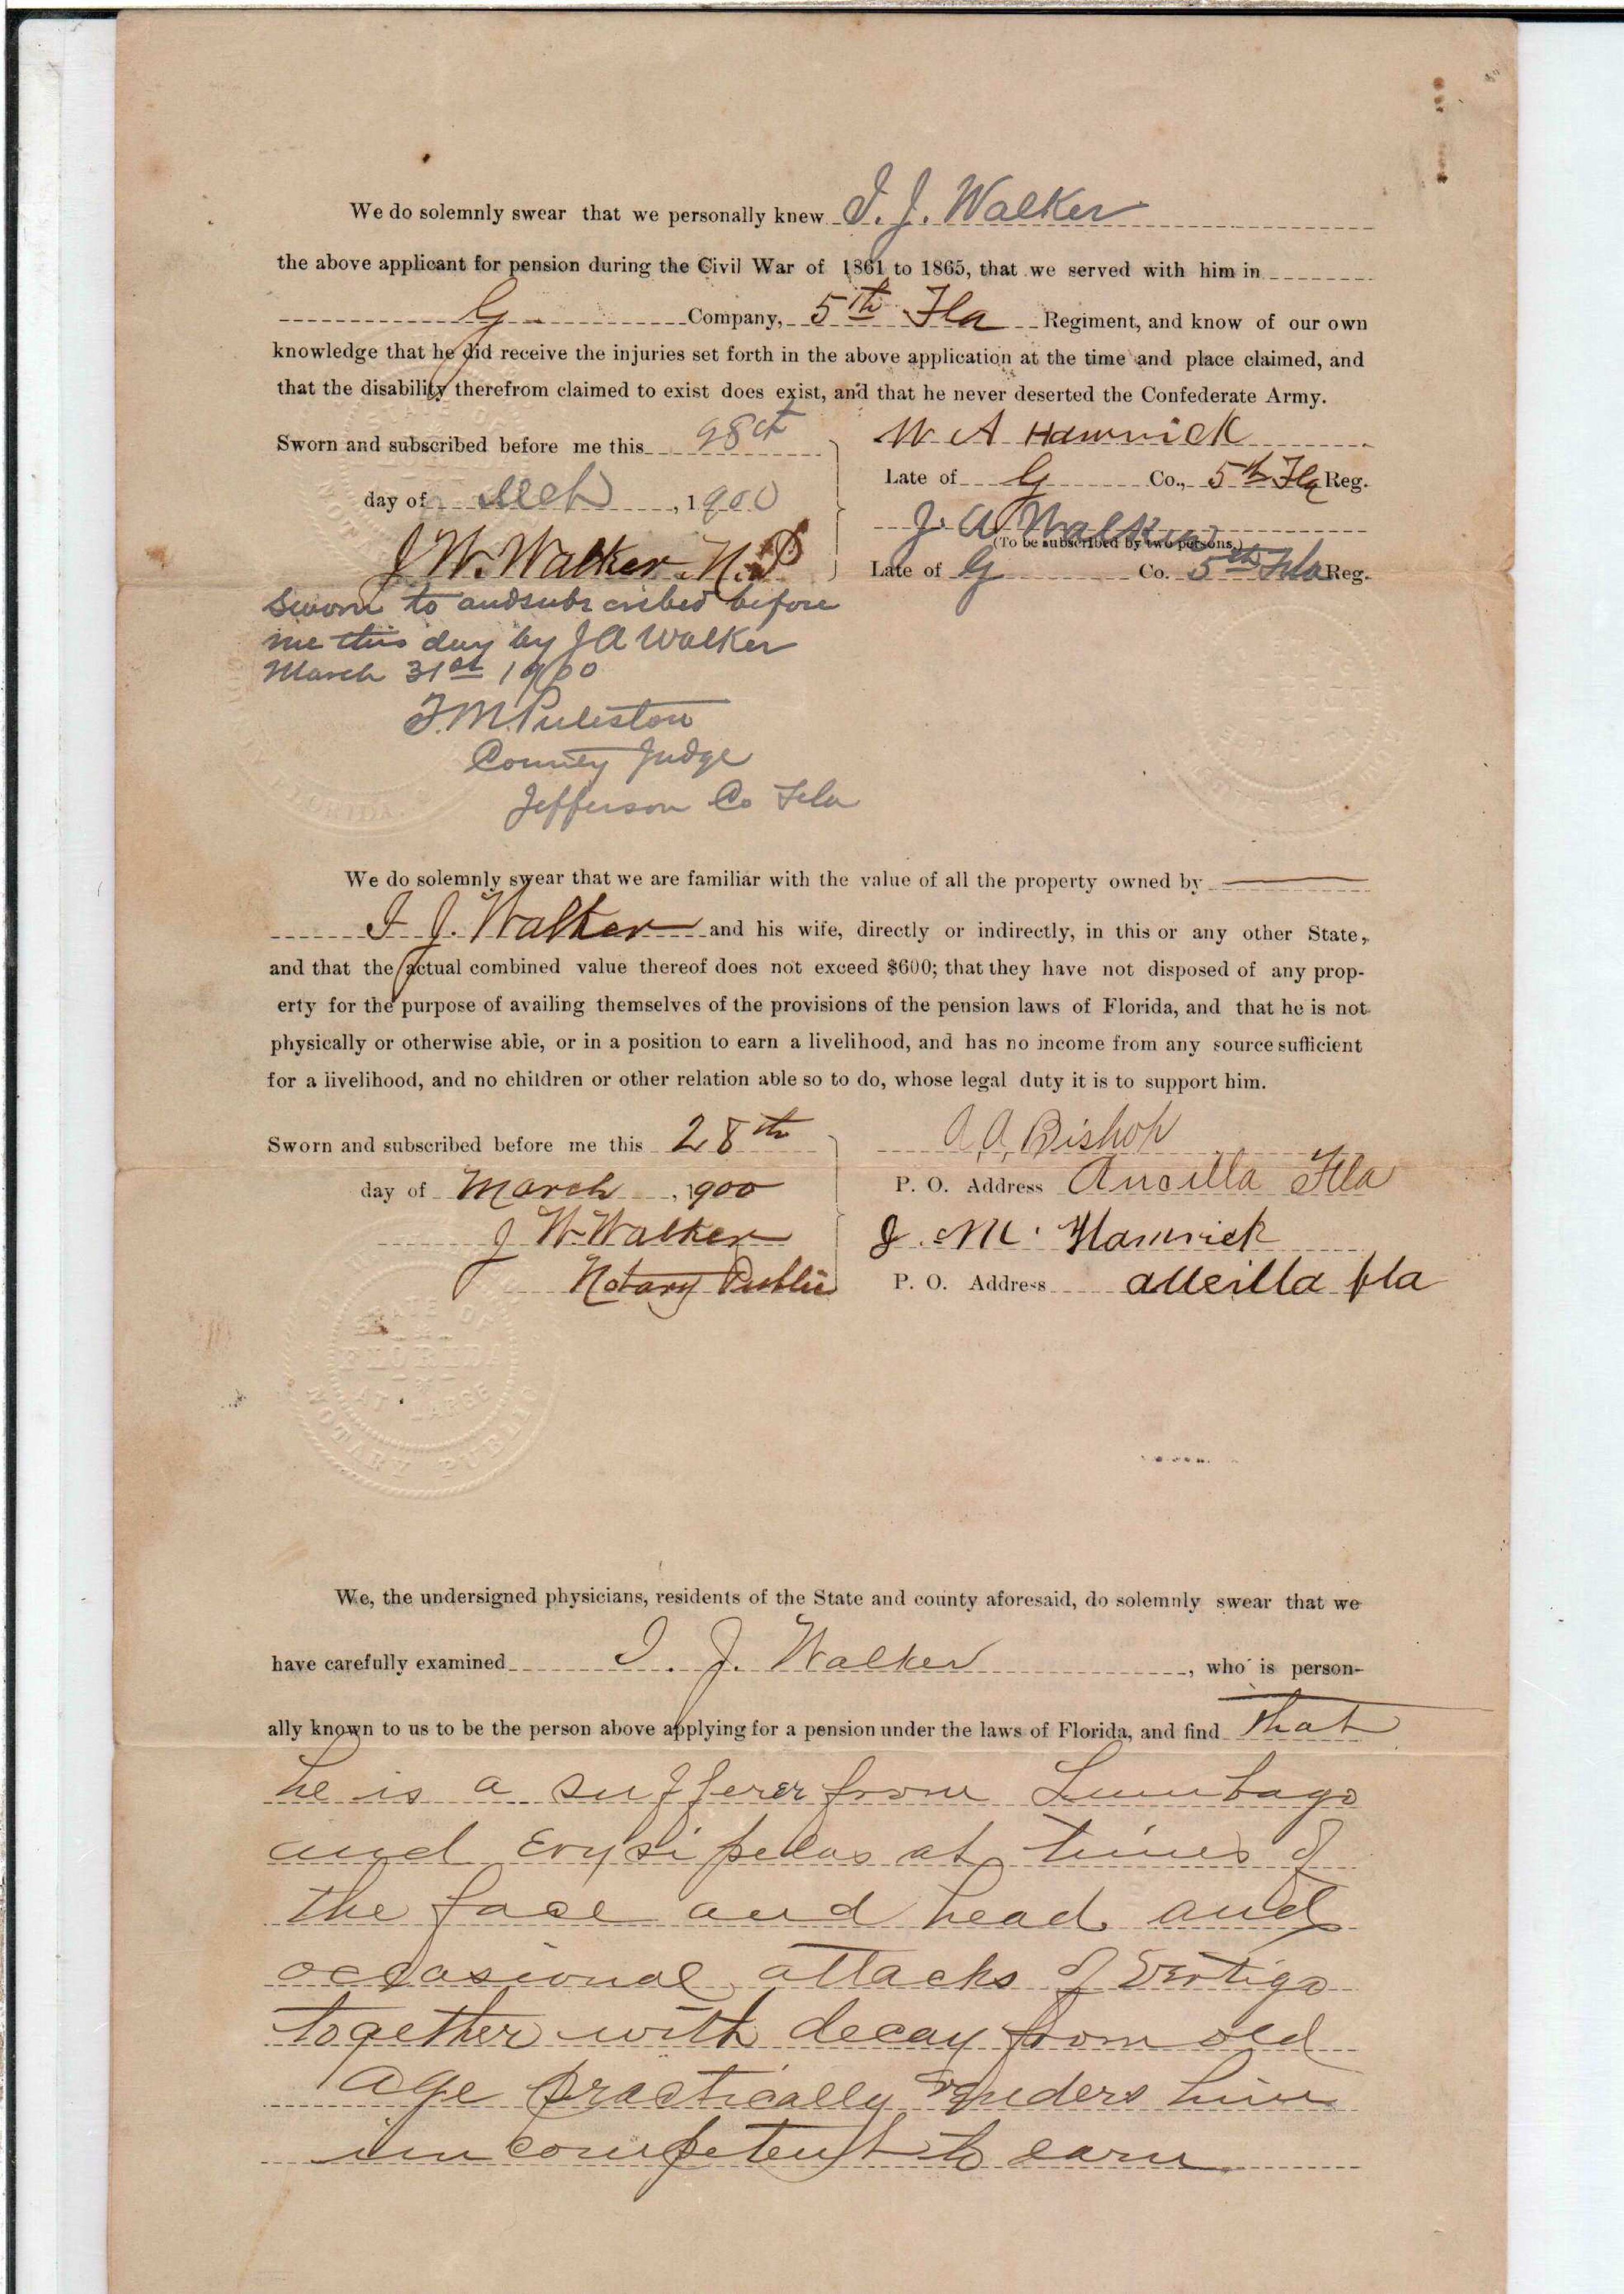 We do solemnly swear that we personally knew I. J. Walker
the above applicant for pension during the Civil War of 1861 to 1865, that we served with him in
G Company, 5th Fla Regiment, and know of our own
knowledge that he did receive the injuries set forth in the above application at the time and place claimed, and
that the disability therefrom claimed to exist does exist, and that he never deserted the Confederate Army.
Sworn and subscribed before me this
day of Mch, 1900
J W. Walker N.P
W A Hamrick
Late of G Co., 5th Fla Reg.
J. A Walker
(To be subscribed by two persons.)
Late of G Co. 5th Fla Reg.
Sworn to and subscribed before
me this day by J A Walker
March 31st 1900
T. M. Puleston
County Judge
Jefferson Co Fla
FLORIDA
We do solemnly swear that we are familiar with the value of all the property owned by
I J. Walker and his wife, directly or indirectly, in this or any other State,
and that the actual combined value thereof does not exceed $600; that they have not disposed of any prop-
erty for the purpose of availing themselves of the provisions of the pension laws of Florida, and that he is not
physically or otherwise able, or in a position to earn a livelihood, and has no income from any source sufficient
for a livelihood, and no children or other relation able so to do, whose legal duty it is to support him.
Sworn and subscribed before me this 28th
day of March, 1900
J W. Walker
Notary Public
A. A. Bishop
P. O. Address Aucilla Fla
J. M. Hamrick
P. O. Address Aucilla fla
STATE OF
FLORIDA
AT LARGE
NOTARY PUBLIC
We, the undersigned physicians, residents of the State and county aforesaid, do solemnly swear that we
have carefully examined I. J. Walker, who is person-
ally known to us to be the person above applying for a pension under the laws of Florida, and find that
he is a sufferer from Lumbago
and Erysipelas at times of
the face and head and
occasional attacks of Vertigo
together with decay from old
age practically renders him
incompetent to earn